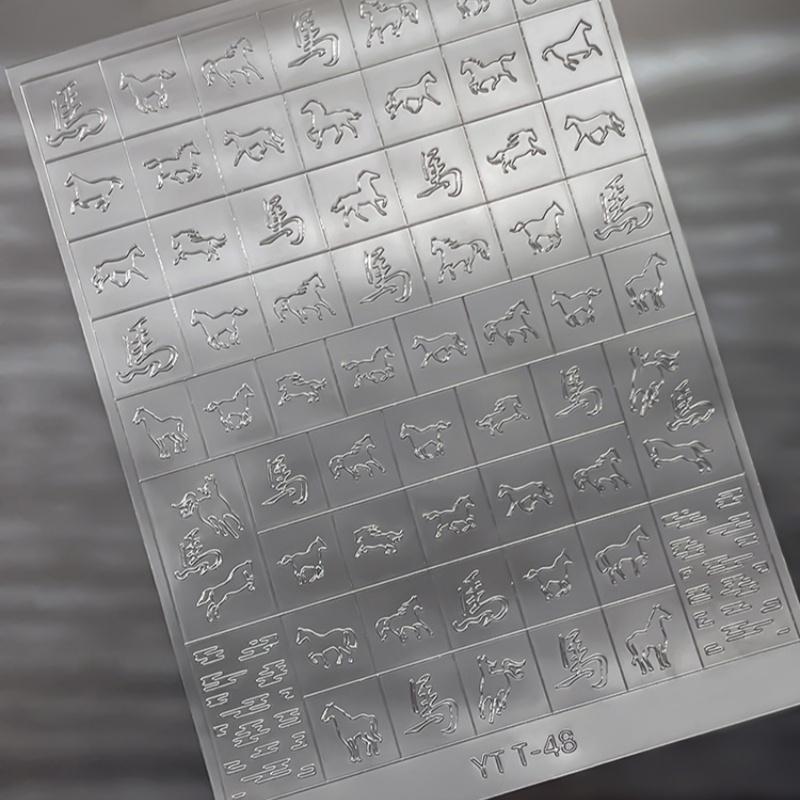 馬 馬
馬 馬
馬 馬
馬
馬
馬 馬
馬
馬
馬 馬
YTT-48